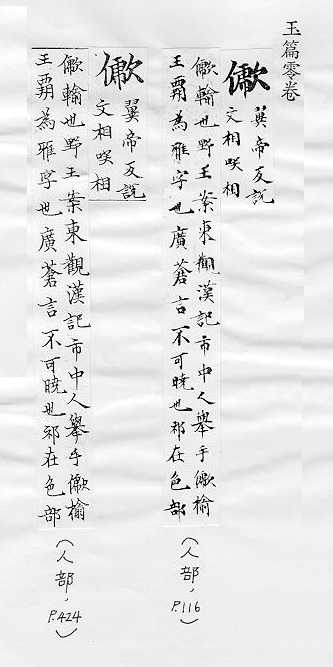 玉篇零卷
歋
翼帝反説
文相咲相
歋輸也野王案東觀漢記市中人舉手歋榆
王霸為雅字也廣蒼言不可暁也邪在色部
(人部,P.116)
歋
翼帝反説
文相咲相
歋輸也野王案東觀漢記市中人舉手歋榆
王霸為雅字也廣蒼言不可暁也邪在色部
(人部,P.424)